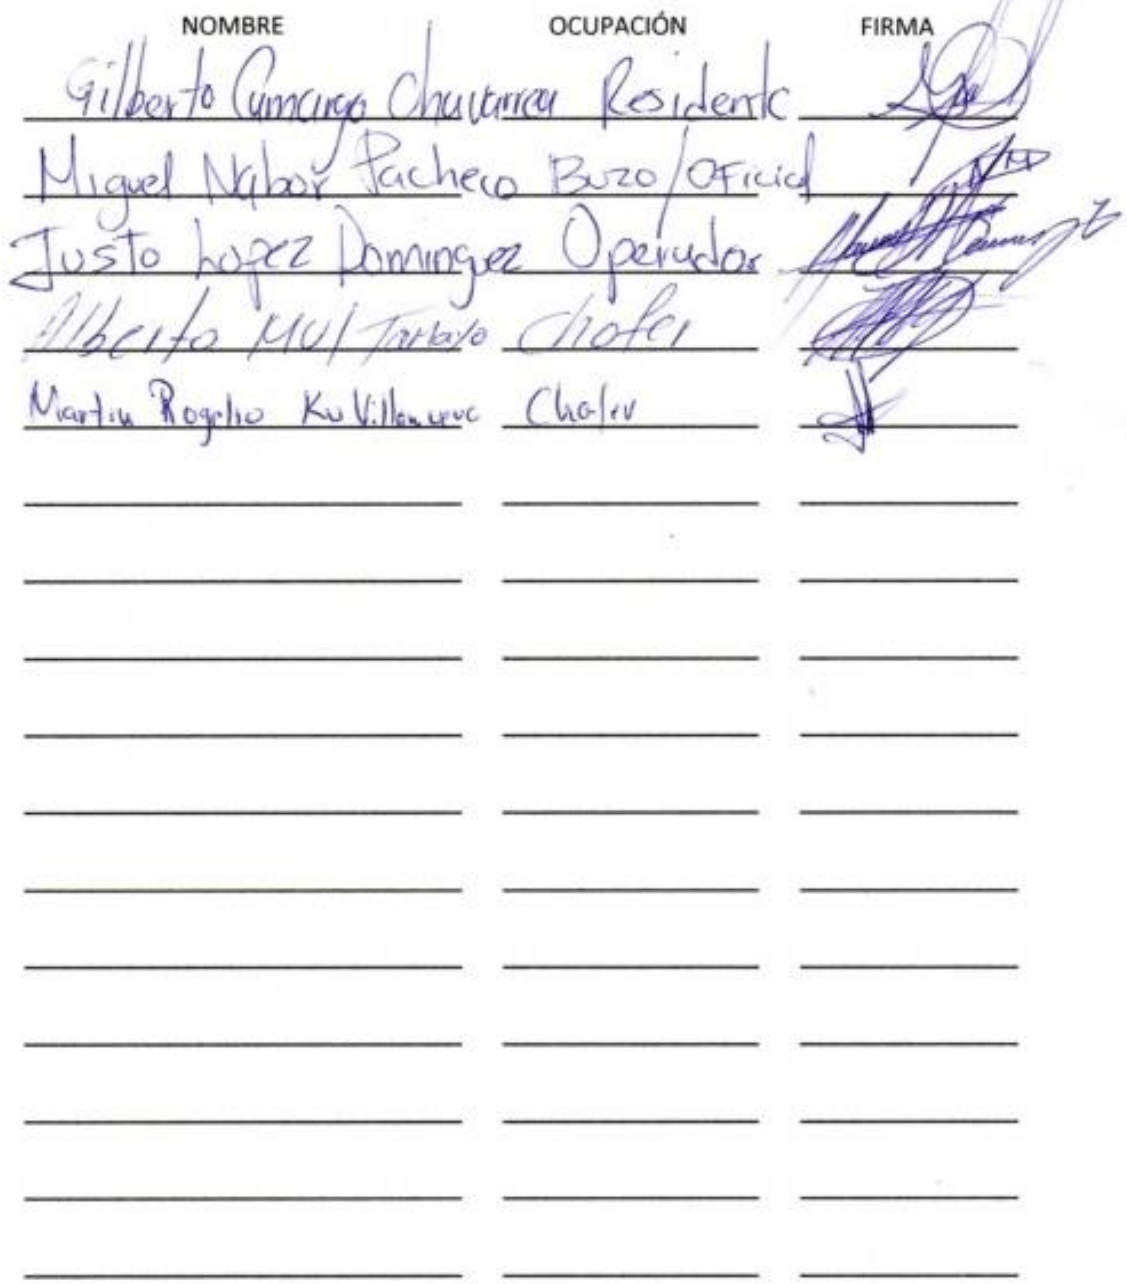 NOMBRE OCUPACIÓN FIRMA
Gilberto Camargo Chavarrea Residente
Miguel Nabor Pacheco Buzo/Oficial
Justo Lopez Dominguez Operador
Alberto MUl Tamayo Chofer
Martin Rogelio Ku Villanueva Chofer